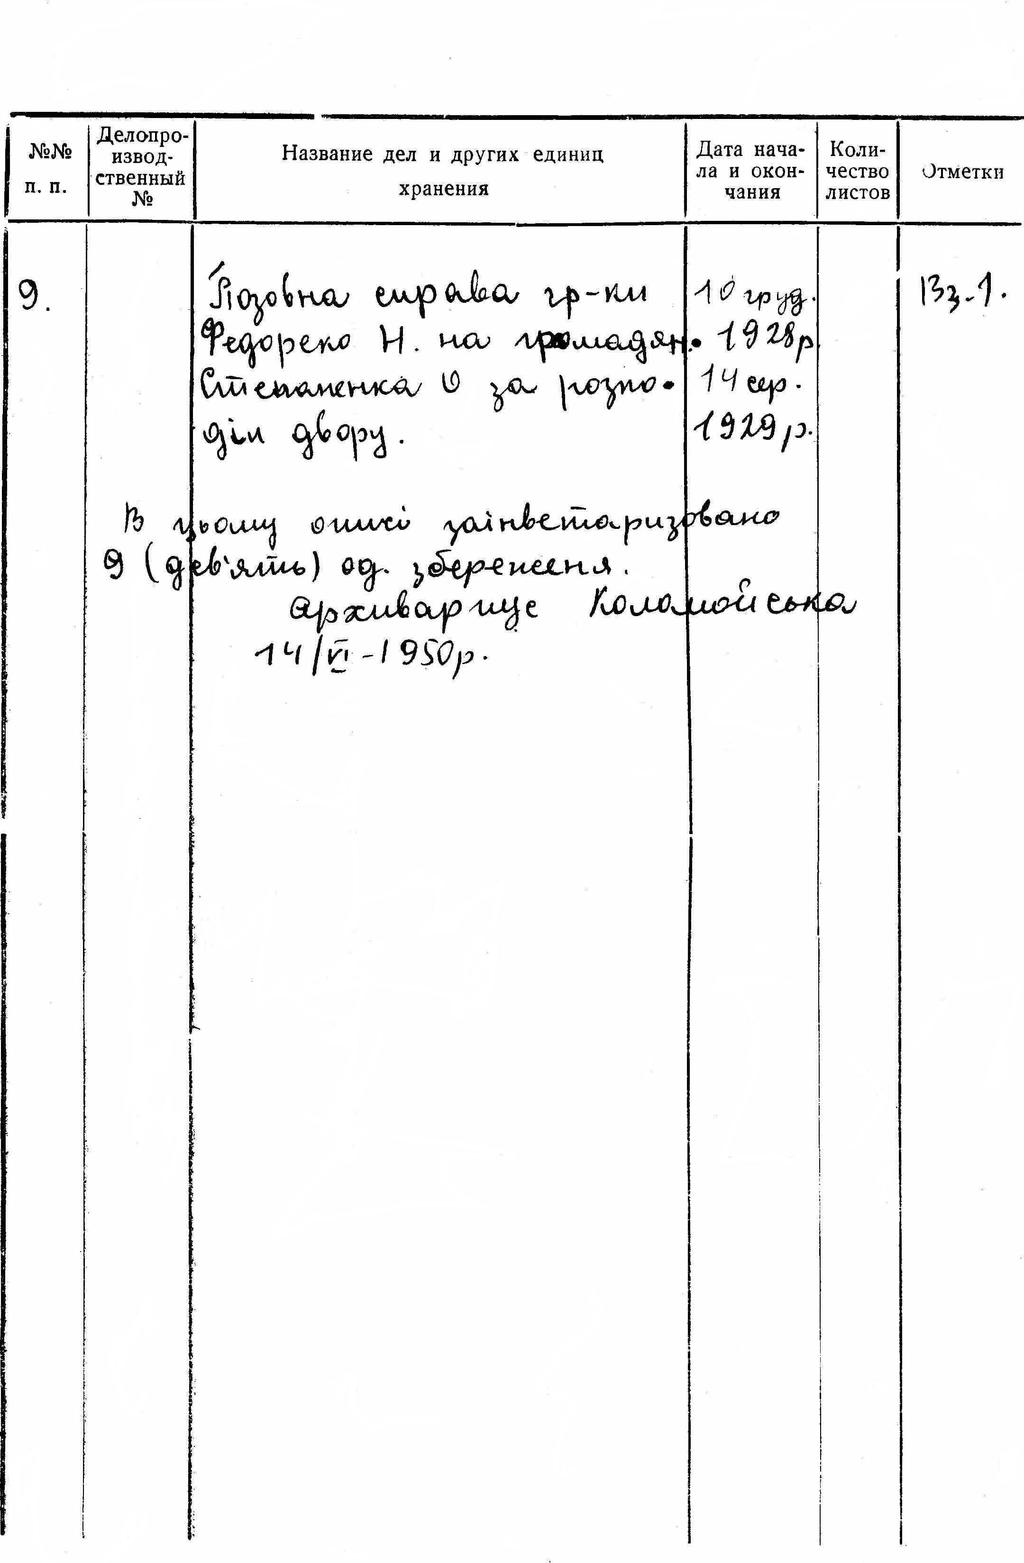 №№ п. п.
Делопро-
извод-
ственный
№
Название дел и других единиц
хранения
Дата нача-
ла и окон-
чания
Коли-
чество
листов
Отметки
9. Позовна справа гр-ки 10 груд. Вз-1.
Федореко Н. на громадян. 1928р
Степаненка О за розпо- 14 сер.
діл двору. 1929р.
В цьому описі заінветаризовано
9 (дев'ять) од. збереження.
Архиваріус Коломойська
14/VI-1950р.